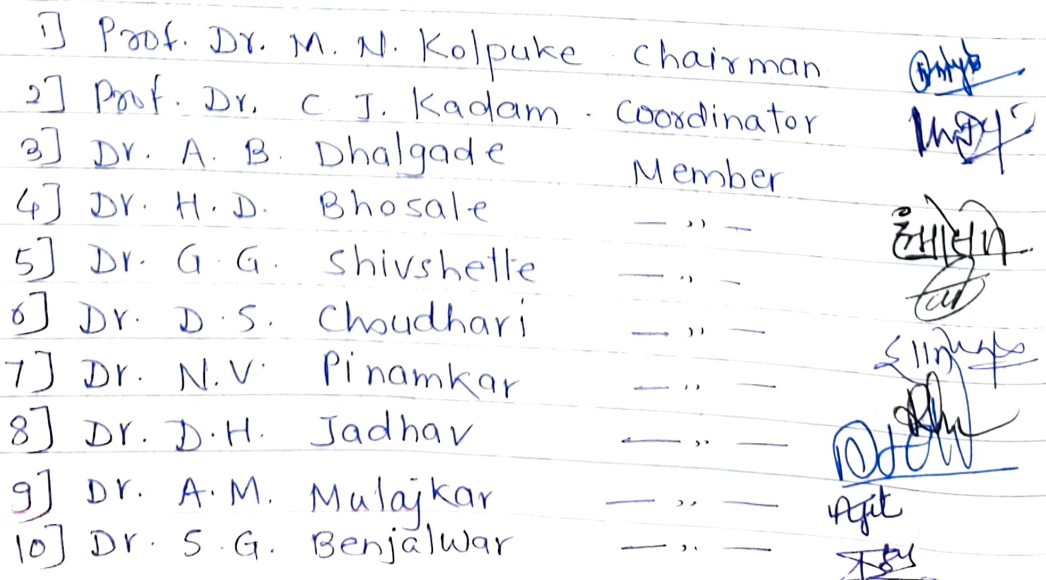 1] Prof. Dr. M. N. Kolpuke Chairman
2] Prof. Dr. C J. Kadam - Coordinator
3] Dr. A. B. Dhalgade Member
4] Dr. H. D. Bhosale — ,, —
5] Dr. G. G. Shivshette — ,, —
6] Dr. D. S. Choudhari — ,, —
7] Dr. N.V. Pinamkar — ,, —
8] Dr. D.H. Jadhav — ,, —
9] Dr. A.M. Mulajkar — ,, — Ajit
10] Dr. S.G. Benjalwar — ,, —